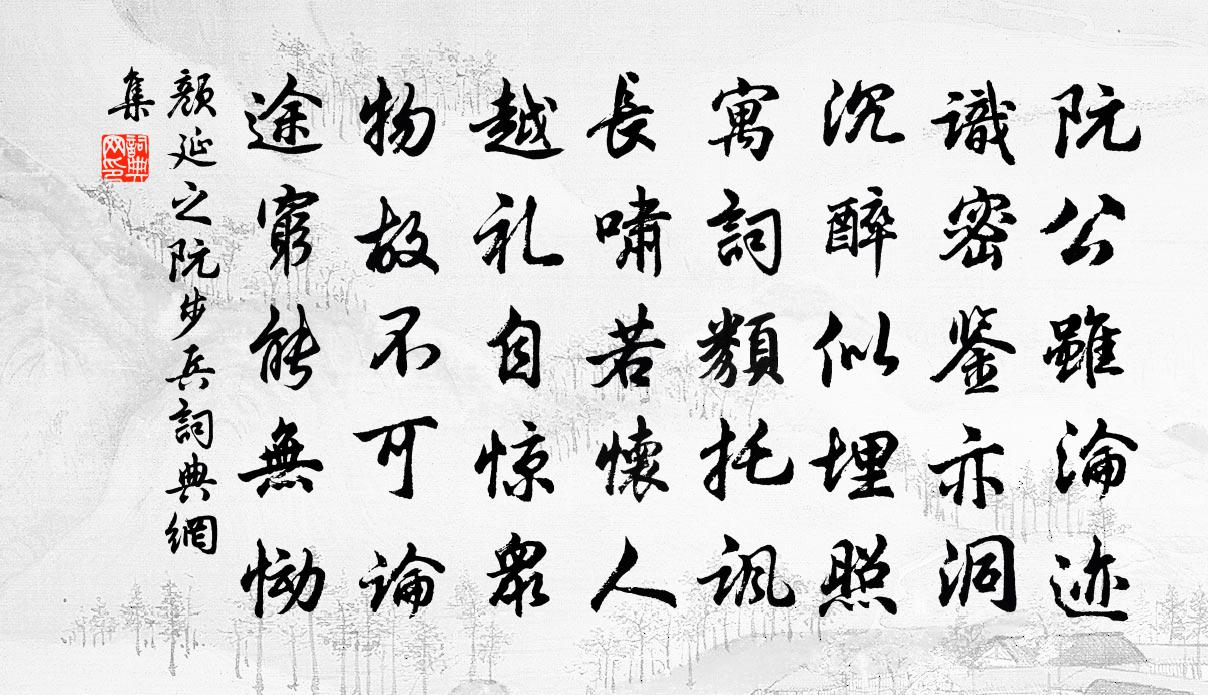 阮公雖淪迹
識密鉴亦洞
沉醉似埋照
寓詞類托諷
長嘯若懷人
越礼自惊眾
物故不可論
途窮能無慟
顏延之阮步兵詞典網
集
詞典网印